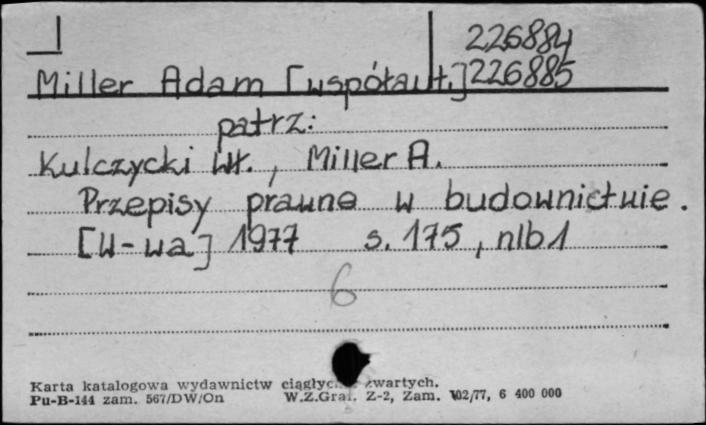 226884
Miller Adam [współaut.] 226885
patrz:
Kulczycki Wł., Miller A.
Przepisy prawne w budownictwie.
[W-wa] 1977 s. 175, nlb 1
6
Karta katalogowa wydawnictw zwartych.
Pu-B-144 zam. 567/DW/On W.Z.Graf. Z-2, Zam. 102/77, 6 400 000